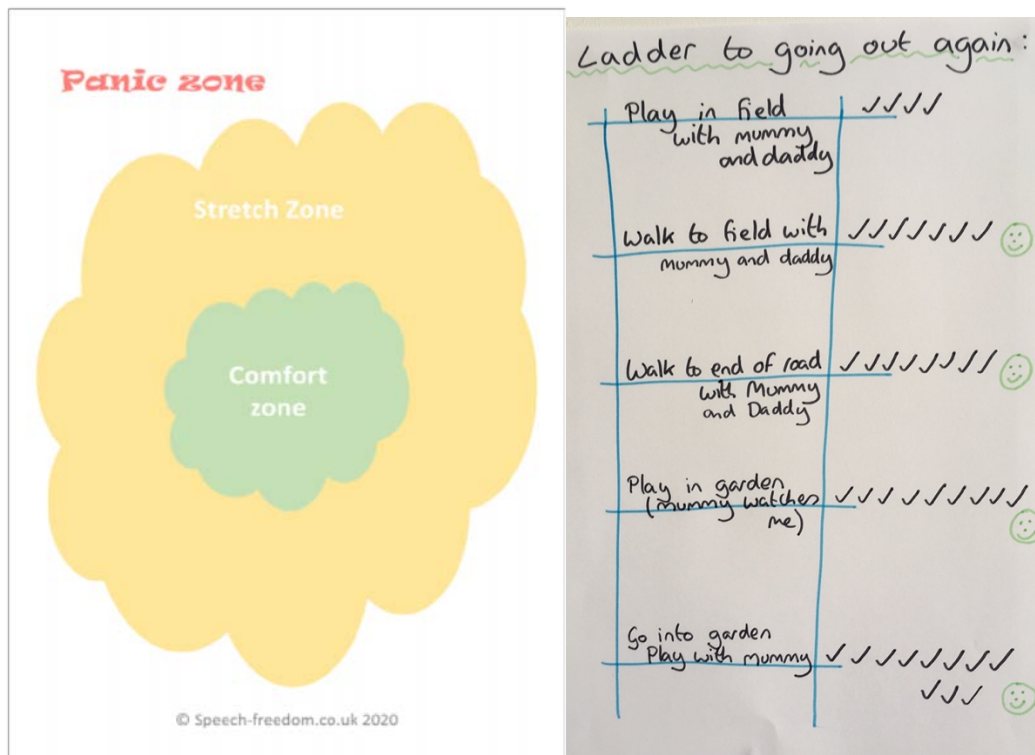 Panic zone
Stretch Zone
Comfort
zone
© Speech-freedom.co.uk 2020
Ladder to going out again:
Play in field
with mummy
and daddy
Walk to field with
mummy and daddy
Walk to end of road
with Mummy
and Daddy
Play in garden
(mummy watches
me)
Go into garden
Play with mummy